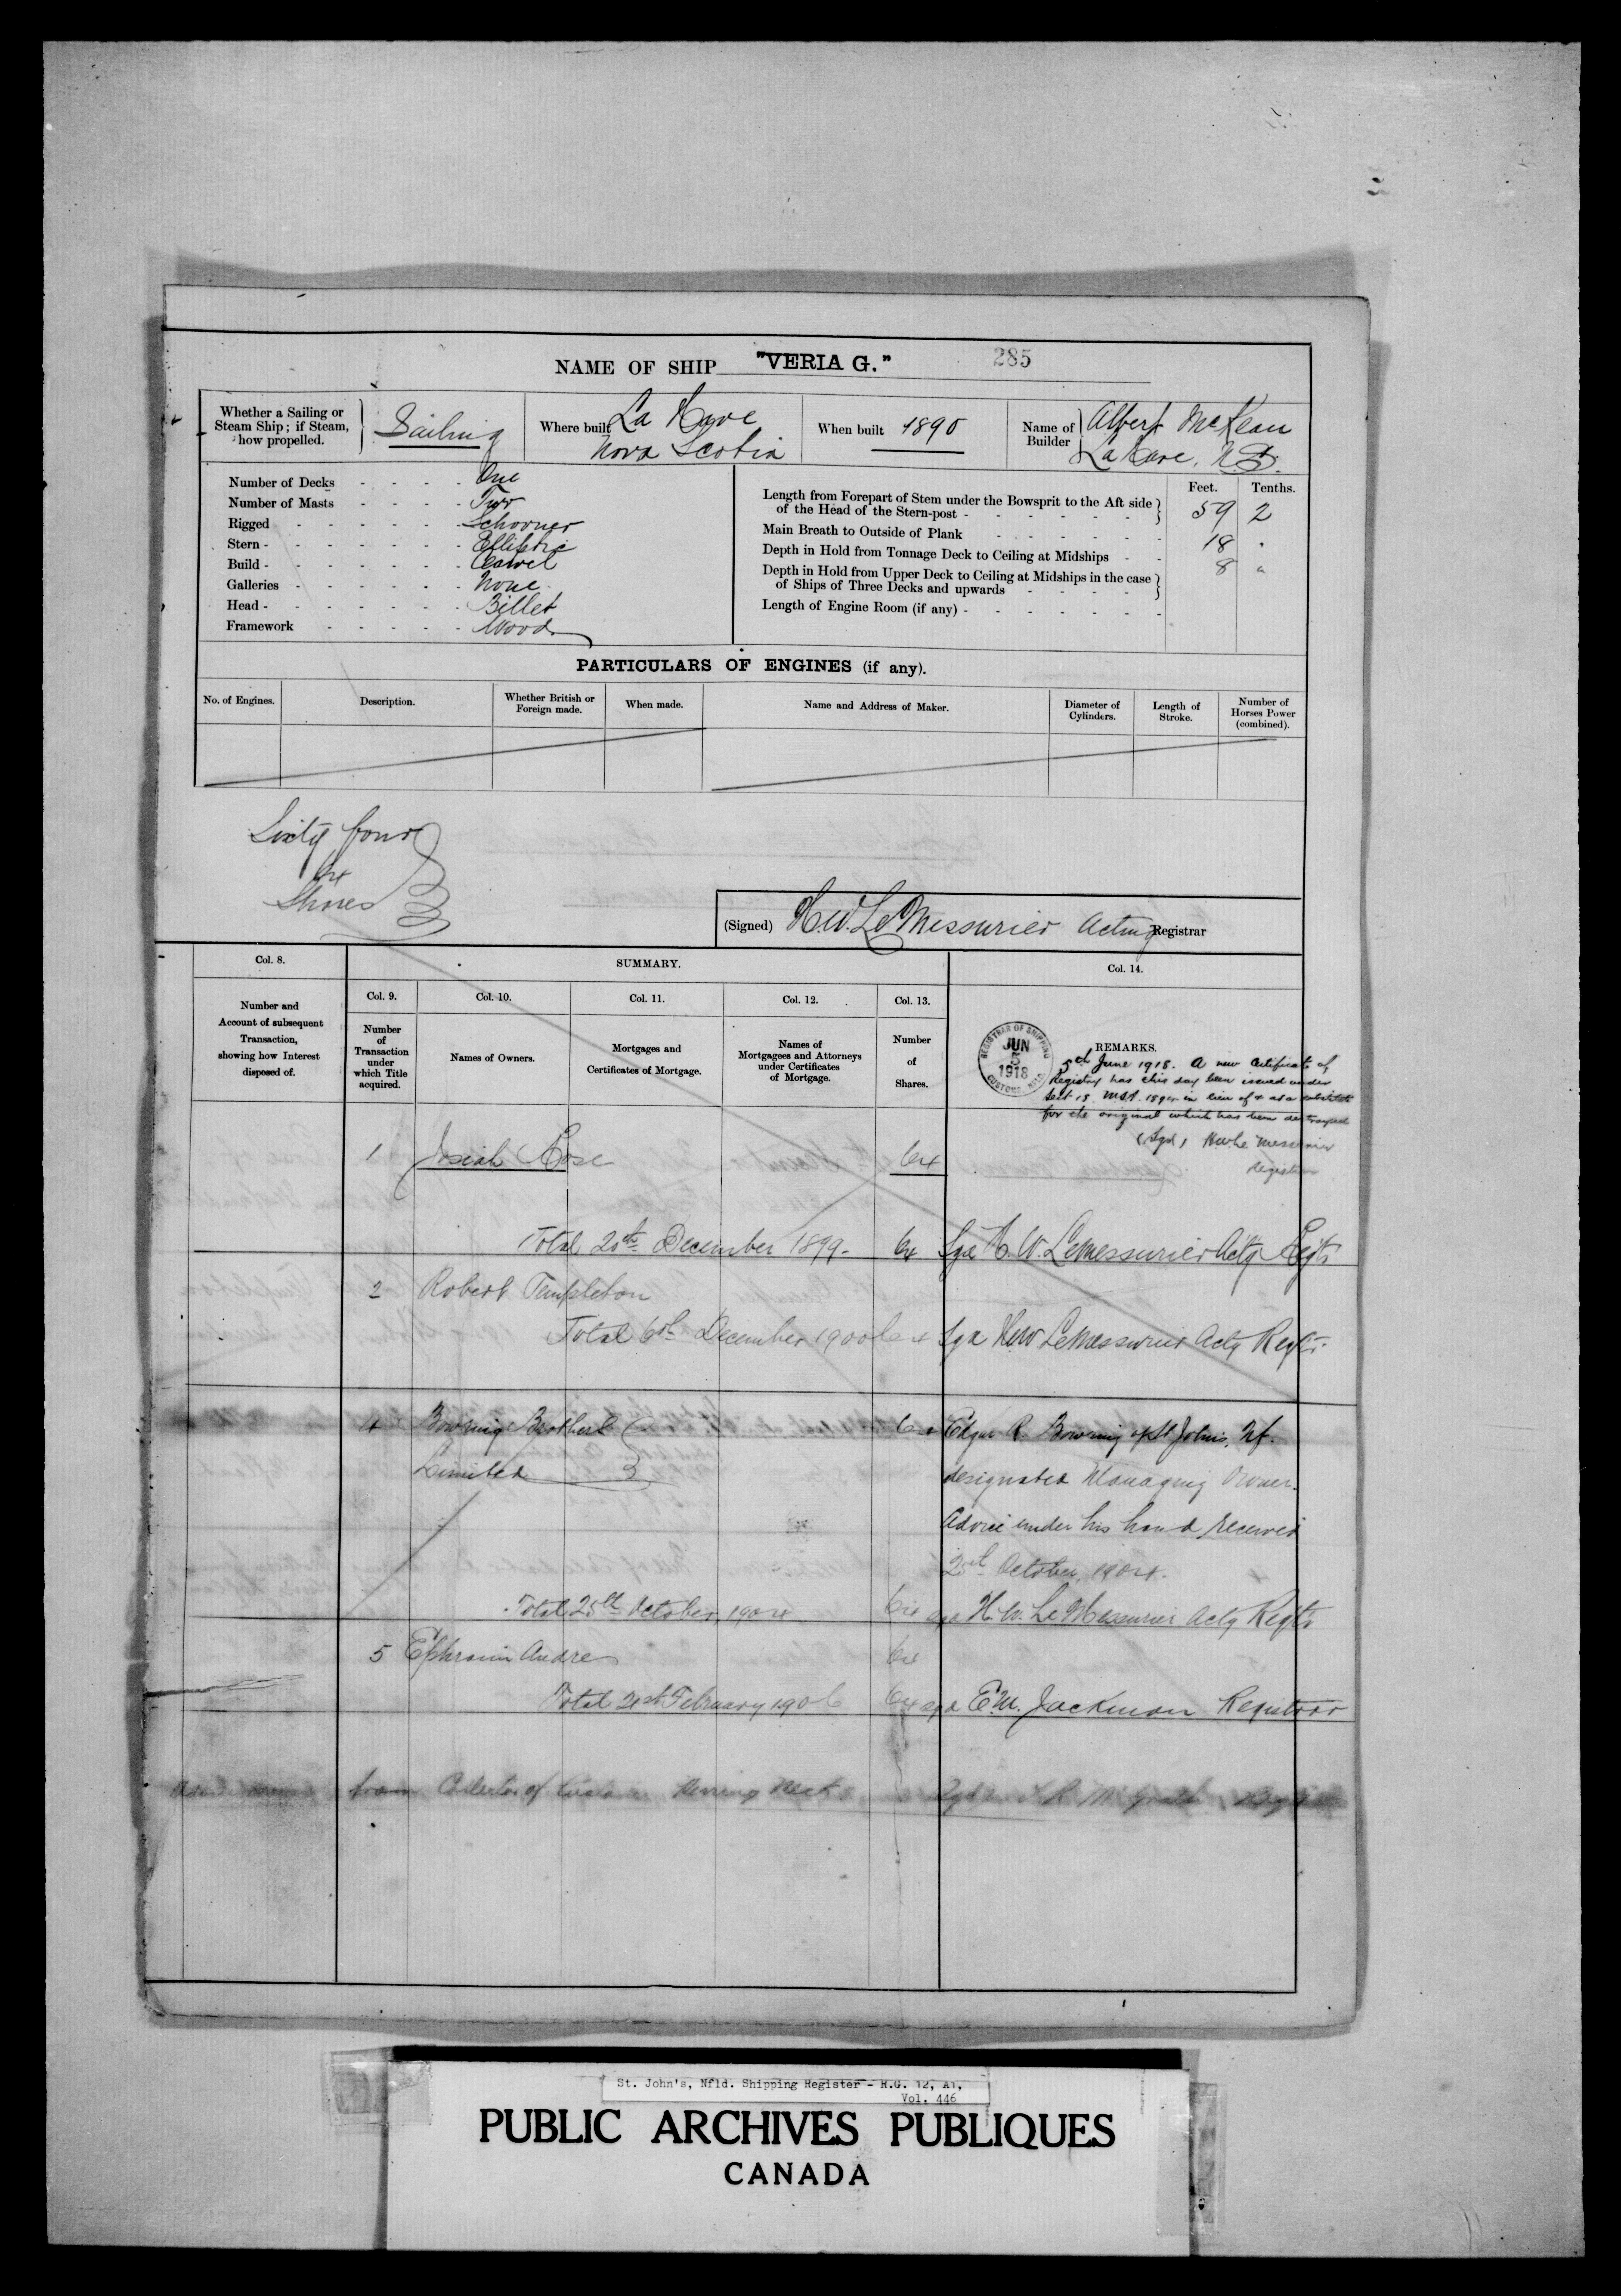 NAME OF SHIP "VERIA G." 285
Whether a Sailing or Steam Ship; if Steam, how propelled. Sailing
Where built La Have Nova Scotia
When built 1890
Name of Builder Albert McKean La Have, N.S.
Number of Decks - - - - One
Number of Masts - - - - Two
Rigged - - - - - - Schooner
Stern - - - - - - - Elliptic
Build - - - - - - - Carvel
Galleries - - - - - - None
Head - - - - - - - Billet
Framework - - - - - Wood
Feet. Tenths.
Length from Forepart of Stem under the Bowsprit to the Aft side
of the Head of the Stern-post - - - - - - 59 2
Main Breath to Outside of Plank - - - - - - 18 "
Depth in Hold from Tonnage Deck to Ceiling at Midships - - 8 "
Depth in Hold from Upper Deck to Ceiling at Midships in the case
of Ships of Three Decks and upwards - - - -
Length of Engine Room (if any) - - - - - - -
PARTICULARS OF ENGINES (if any).
No. of Engines.
Description.
Whether British or
Foreign made.
When made.
Name and Address of Maker.
Diameter of
Cylinders.
Length of
Stroke.
Number of
Horses Power
(combined).
Sixty four
64
Shares
(Signed) H.W. LeMessurier Acting Registrar
Col. 8.
SUMMARY.
Col. 14.
Number and
Account of subsequent
Transaction,
showing how Interest
disposed of.
Col. 9.
Number
of
Transaction
under
which Title
acquired.
Col. 10.
Names of Owners.
Col. 11.
Mortgages and
Certificates of Mortgage.
Col. 12.
Names of
Mortgagees and Attorneys
under Certificates
of Mortgage.
Col. 13.
Number
of
Shares.
REGISTRAR OF SHIPPING
JUN
5
1918
CUSTOMS, NFLD.
REMARKS.
5th June 1918. A new Certificate of
Registry has this day been issued under
Sect 18 MSA 1894 in lieu of & as a substitute
for the original which has been destroyed
(Sgd) HW Le Messurier
Registrar
1 Josiah Rose 64
Total 20th December 1899 - 64 Sgd H.W. LeMessurier Actg Regtr
2 Robert Templeton
Total 6th December 1900 64 Sgd HW LeMessurier Actg Regtr.
4 Bowring Brothers 64 Edgar R. Bowring of St Johns, Nf.
Limited designated Managing Owner.
Advice under his hand received
25th October, 1904.
Total 25th October 1904 64 sgd H.W. LeMessurier Actg Regtr
5 Ephraim Andre 64
Total 21st February 1906 64 sgd E.M. Jackman Registrar
from Collector of Customs Herring Neck
St. John's, Nfld. Shipping Register - R.G. 12, A1,
Vol. 446
PUBLIC ARCHIVES PUBLIQUES
CANADA